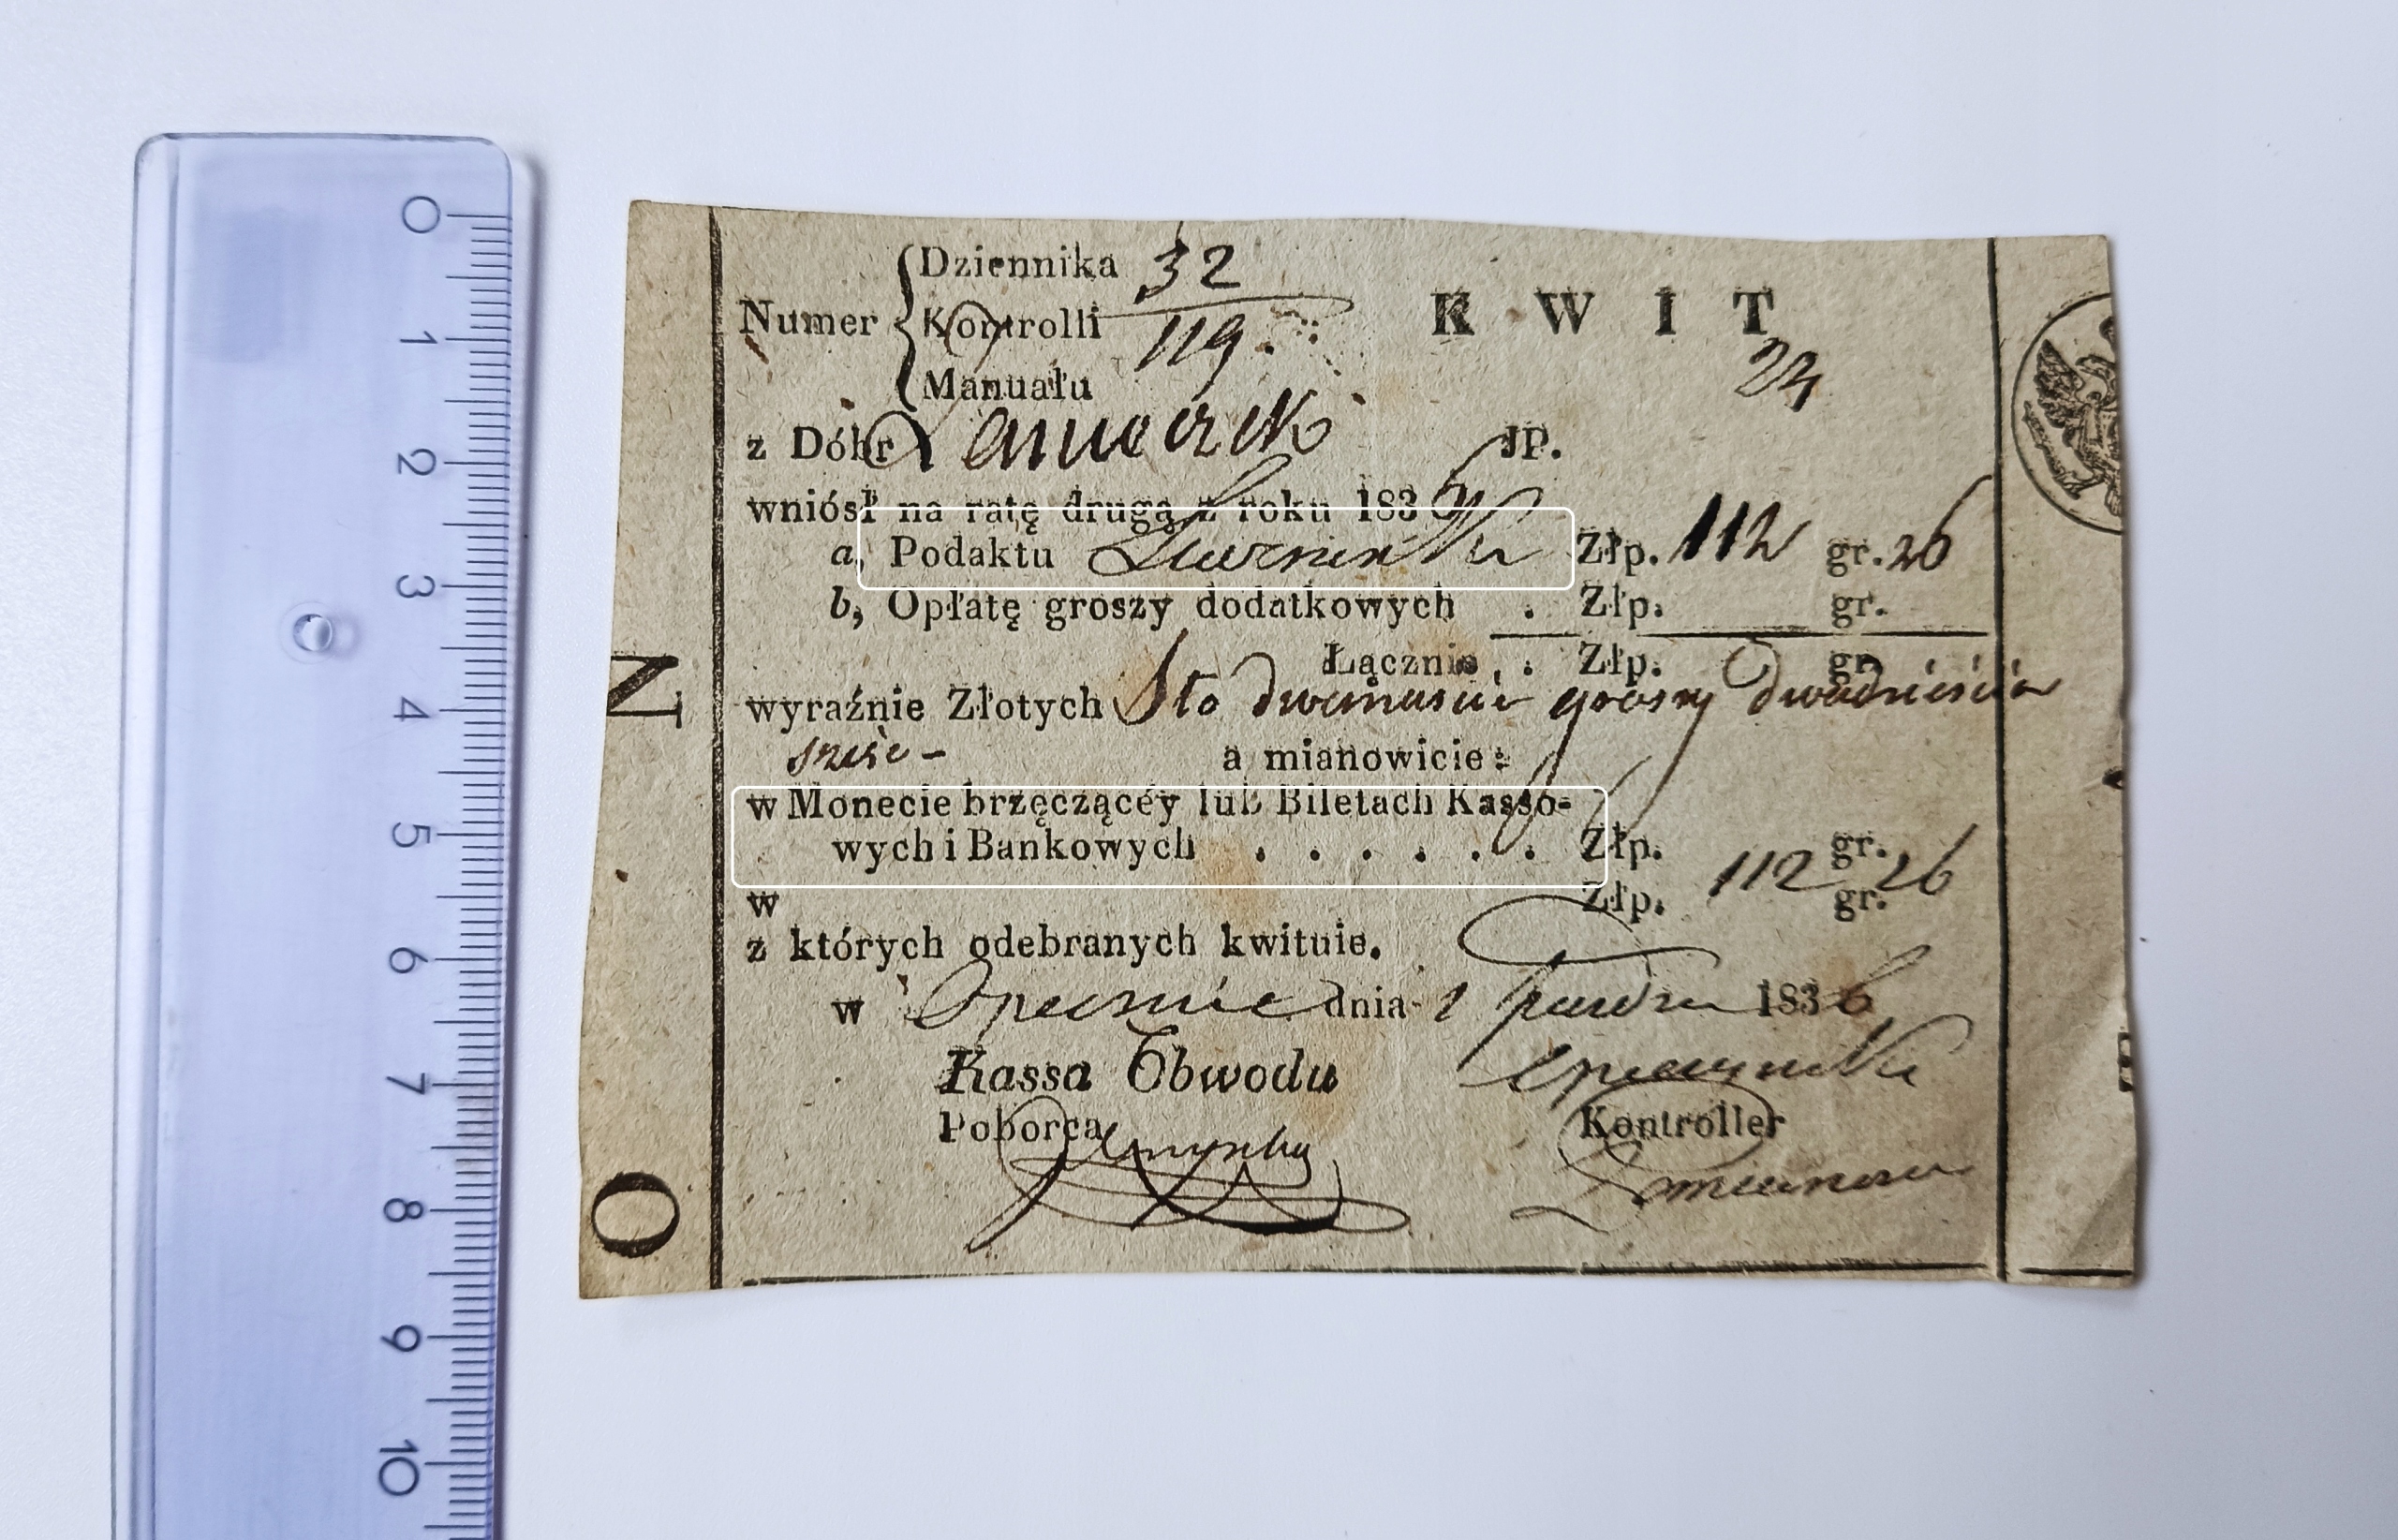 0
1
2
3
4
5
6
7
8
9
10
N
O
Dziennika 32
Numer Kontrolli 119.
Manuału
K W I T
z Dóbr JP.
wniósł na ratę drugą z roku 1836
a, Podaktu Złp. 112 gr. 26
b, Opłatę groszy dodatkowych . Złp. gr.
Łącznie . . Złp. gr.
wyraźnie Złotych Sto dwanaście groszy dwadzieścia
sześć -
a mianowicie:
w Monecie brzęczącéy lub Biletach Kasso-
wych i Bankowych . . . . . . Złp. gr.
w Złp. 112 gr. 26
z których odebranych kwituie.
w Opocznie dnia 1 1836
Kassa Obwodu
Poborca Kontroller